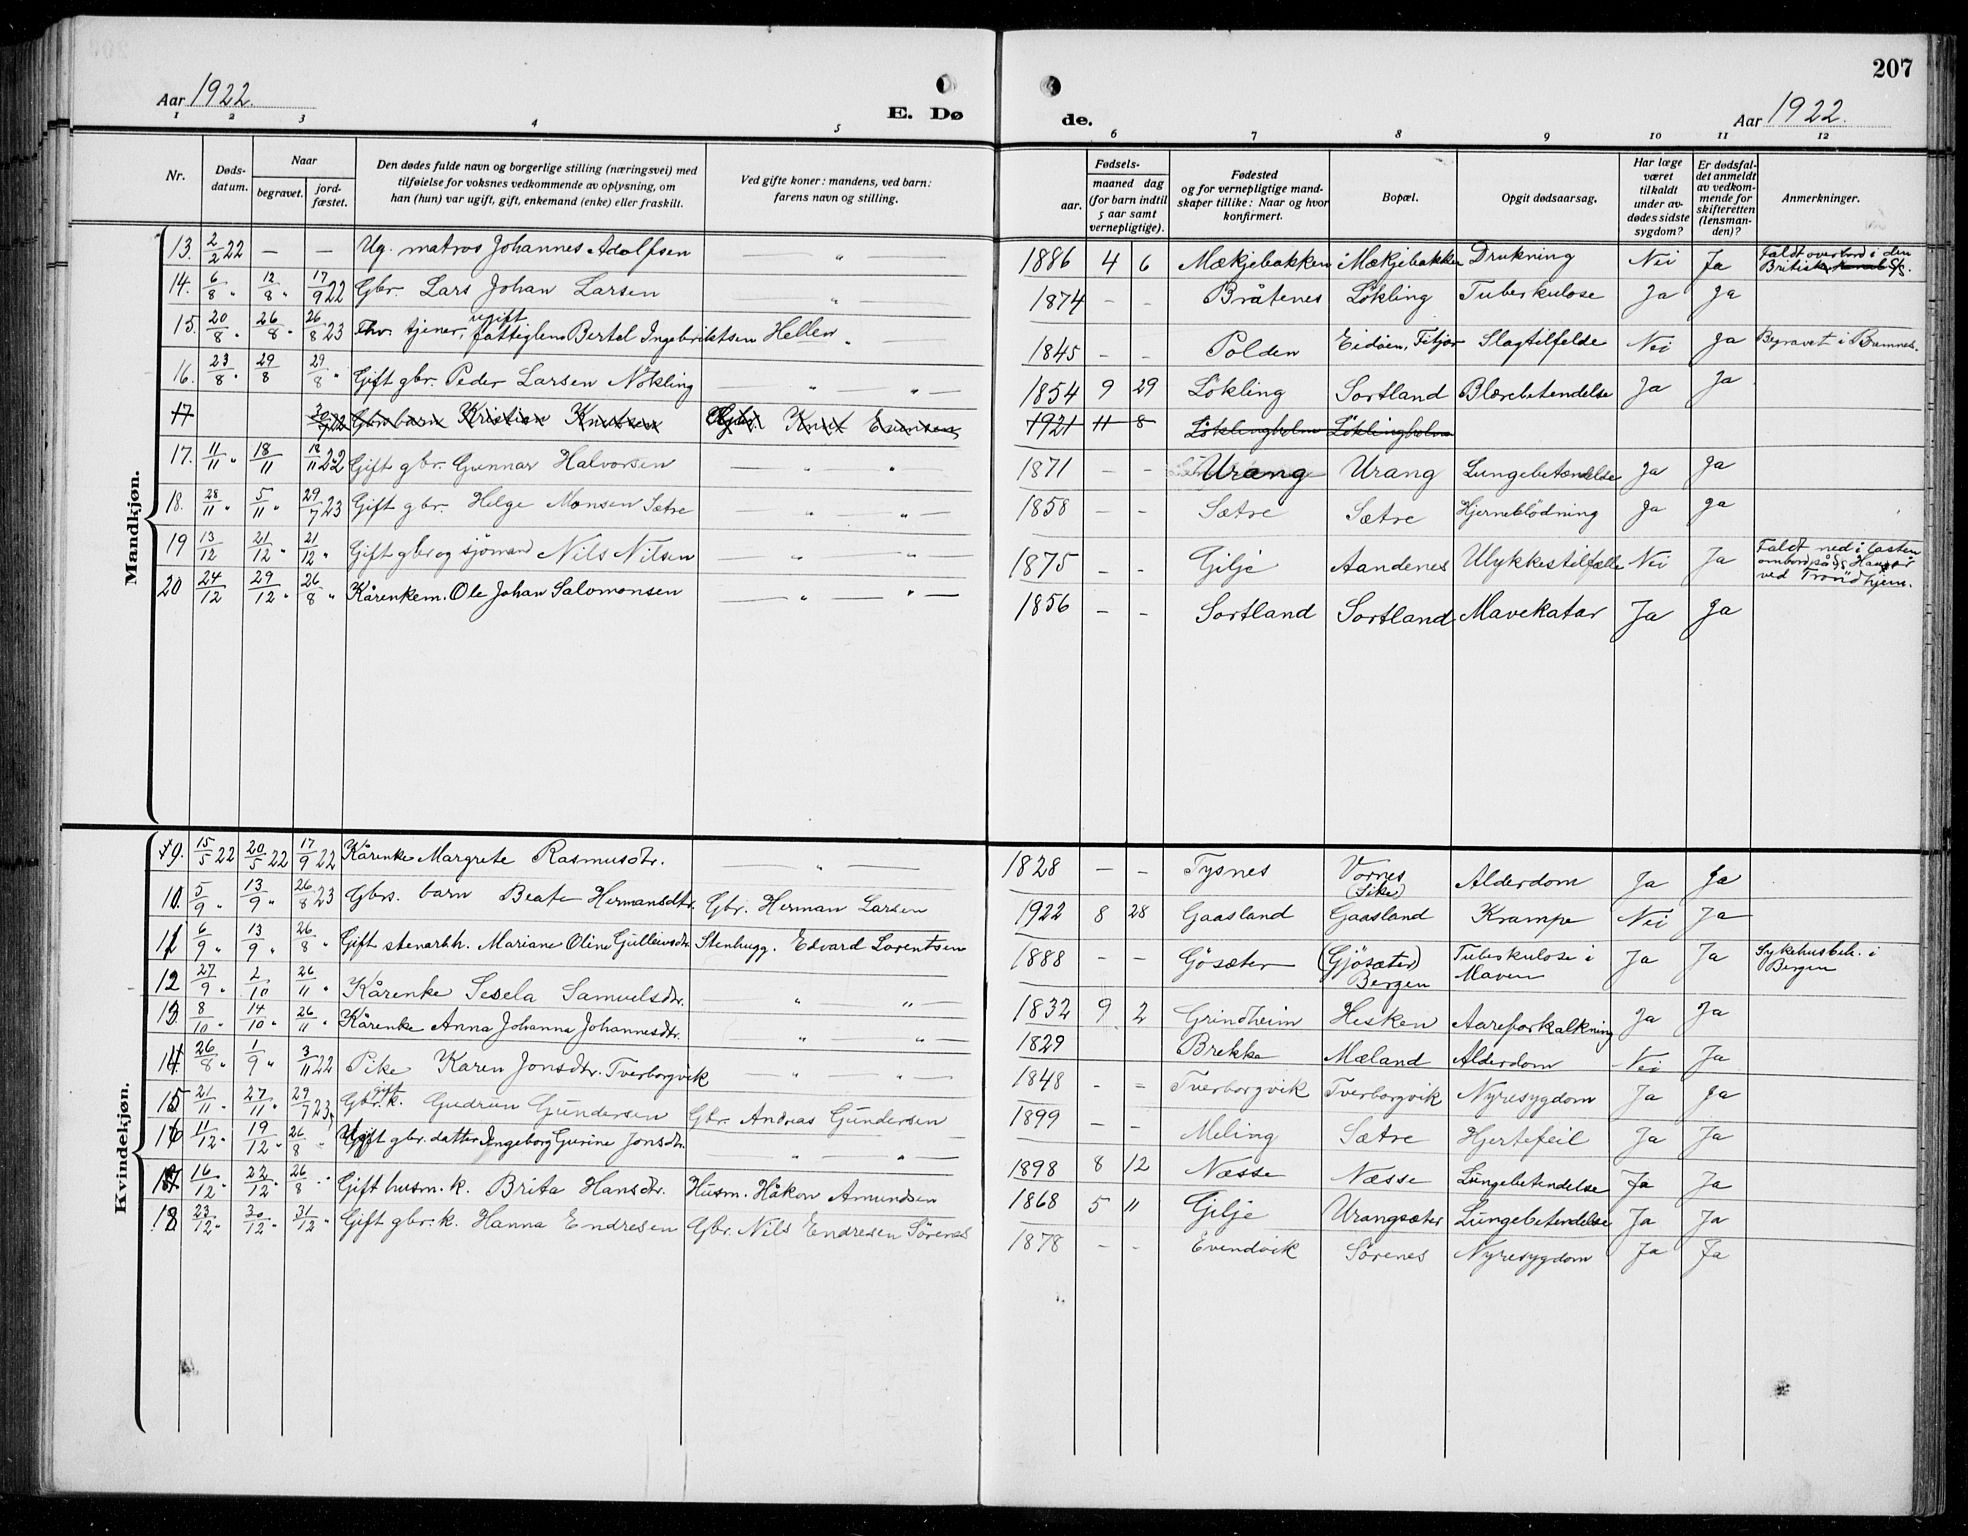 207
Aar 1922.
E. Dø
de.
Aar 1922.
1 2 3 4 5 6 7 8 9 10 11 12
Nr.
Døds-
datum.
Naar
begravet.
jord-
fæstet.
Den dødes fulde navn og borgerlige stilling (næringsvei) med
tilføielse for voksnes vedkommende av oplysning, om
han (hun) var ugift, gift, enkemand (enke) eller fraskilt.
Ved gifte koner: mandens, ved barn:
farens navn og stilling.
Fødsels-
aar.
maaned dag
(for barn indtil
5 aar samt
vernepligtige).
Fødested
og for vernepligtige mand-
skaper tillike: Naar og hvor
konfirmert.
Bopæl.
Opgit dødsaarsag.
Har læge
været
tilkaldt
under av-
dødes sidste
sygdom?
Er dødsfal-
det anmeldt
av vedkom-
mende for
skifteretten
(lensman-
den)?
Anmerkninger.
Mandkjøn.
13. 2/2 22 — — Ug. matros Johannes Adolfsen — " — 1886 4 6 Mækjebakken Mækjebakken Drukning Nei Ja Faldt overbord i den
Britiske kanal
14. 6/8 " 12/8 " 17/9 22 Gbr. Lars Johan Larsen — " — 1874 – – Bråtenes Løkling Tuberkulose Ja Ja
15. 20/8 " 26/8 " 26/8 23 Fhv. tjener, ugift fattiglem Bertel Ingebriktsen Hellen " — 1845 – – Polden Eidøen, Fitjar Slagtilfelde Nei Ja Begravet i Bremnes.
16. 23/8 " 29/8 29/8 " Gift gbr. Peder Larsen Nökling — " " — 1854 9 29 Løkling Sortland Blærebetendelse Ja Ja
17 Gbr. barn Kristian Knutsen Gbr. Knut Evensen 1921 11 8 Løklingholm Løklingholm
17. 11/11 " 18/11 18/11 22 Gift gbr. Gunnar Halvorsen — " " — 1871 – – Urang Urang Lungebetændelse Ja Ja
18. 28/11 " 5/11 " 29/7 23 Gift gbr. Helge Monsen Sætre — " " — 1858 – – Sætre Sætre Hjerneblödning Ja Ja
19 13/12 21/12 " 21/12 " Gift gbr og sjömand Nils Nilsen — " " — 1875 – – Gilje Aandenes Ulykkestilfælle Nei Ja Faldt ned i lasten
ombord på
ved Trondhjem.
20 24/12 29/12 " 26/8 " Kårenkem. Ole Johan Salomonsen — " " — 1856 – – Sortland Sortland Mavekatar Ja Ja
Kvindekjøn.
9. 15/5 22 20/5 22 17/9 22 Kårenke Margrete Rasmusdtr. — " — 1828 – – Tysnes Vornes
(Sike) Alderdom Ja Ja
10. 5/9 " 13/9 " 26/8 23 Gbrs. barn Beate Hermansdtr. Gbr. Herman Larsen 1922 8 28 Gaasland Gaasland Krampe Nei Ja
11 6/9 " 13/9 " 26/8 " Gift stenarbh. Mariane Oline Gulleivsdtr. Stenhugg. Edvard Lorentsen 1888 – – Gösæter (Gjösæter)
Bergen Tuberkulose i
Maven Ja Ja Sykehusbeh. i
Bergen
12 27/9 " 2/10 26/11 " Kårenke Sesela Samuelsdtr. — " " — 1832 9 2 Grindheim Hesken Aareforkalkning Ja Ja
13. 8/10 " 14/10 " 26/11 " Kårenke Anna Johanna Johannesdtr. — " " — 1829 Brekke Mæland Alderdom Nei Ja
14. 26/8 " 1/9 " 3/11 22 Pike Karen Jonsdtr. Tverborgvik — " " — 1848 – – Tverborgvik Tverborgvik Nyresygdom Ja Ja
15 21/11 " 27/11 " 29/7 23. Gbr. gift k. Gudrun Gundersen Gbr. Andreas Gundersen 1899 – – Meling Sætre Hjertefeil Ja Ja
16 11/12 " 19/12 " 26/8 " Ugift gbr. datter Ingeborg Gurine Jonsdtr. — " " — 1898 8 12 Næsse Næsse Lungebetendelse Ja Ja
17 16/12 " 22/12 " 26/8 " Gift husm. k. Brita Hansdtr. Husm. Håkon Amundsen 1868 5 11 Gilje Urangsæter Lungebetendelse Ja Ja
18 23/12 " 30/12 " 31/12 " Gift gbr. k. Hanna Endresen Gbr. Nils Endresen Sörenes 1878 – – Evendvik Sörenes Nyresygdom Ja Ja